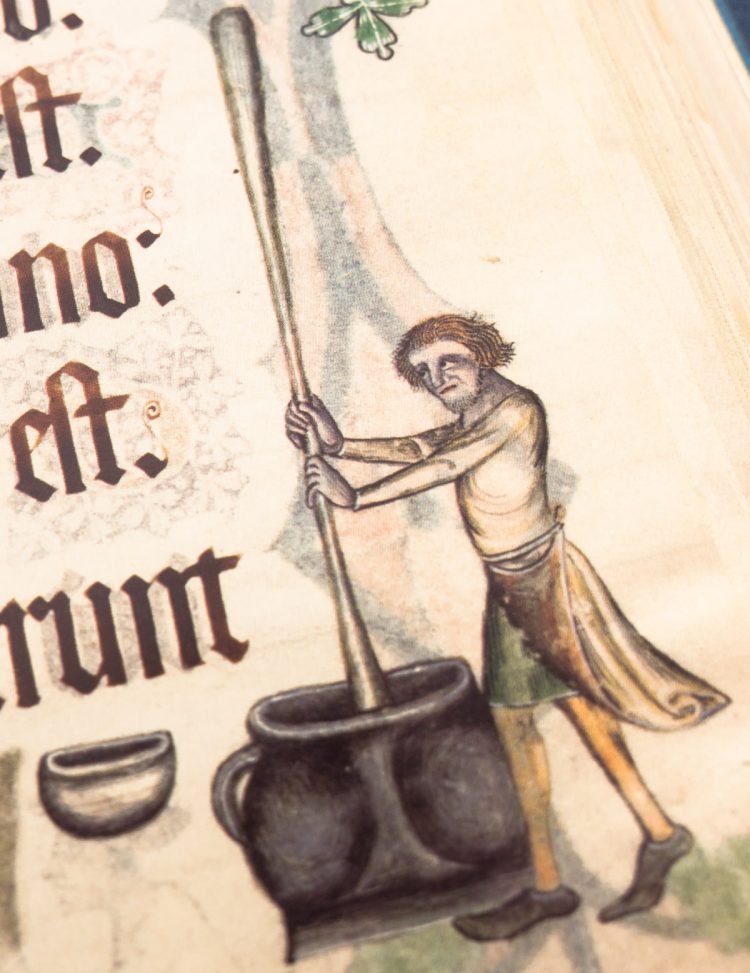 o.
eſt.
no:
eſt.
runt